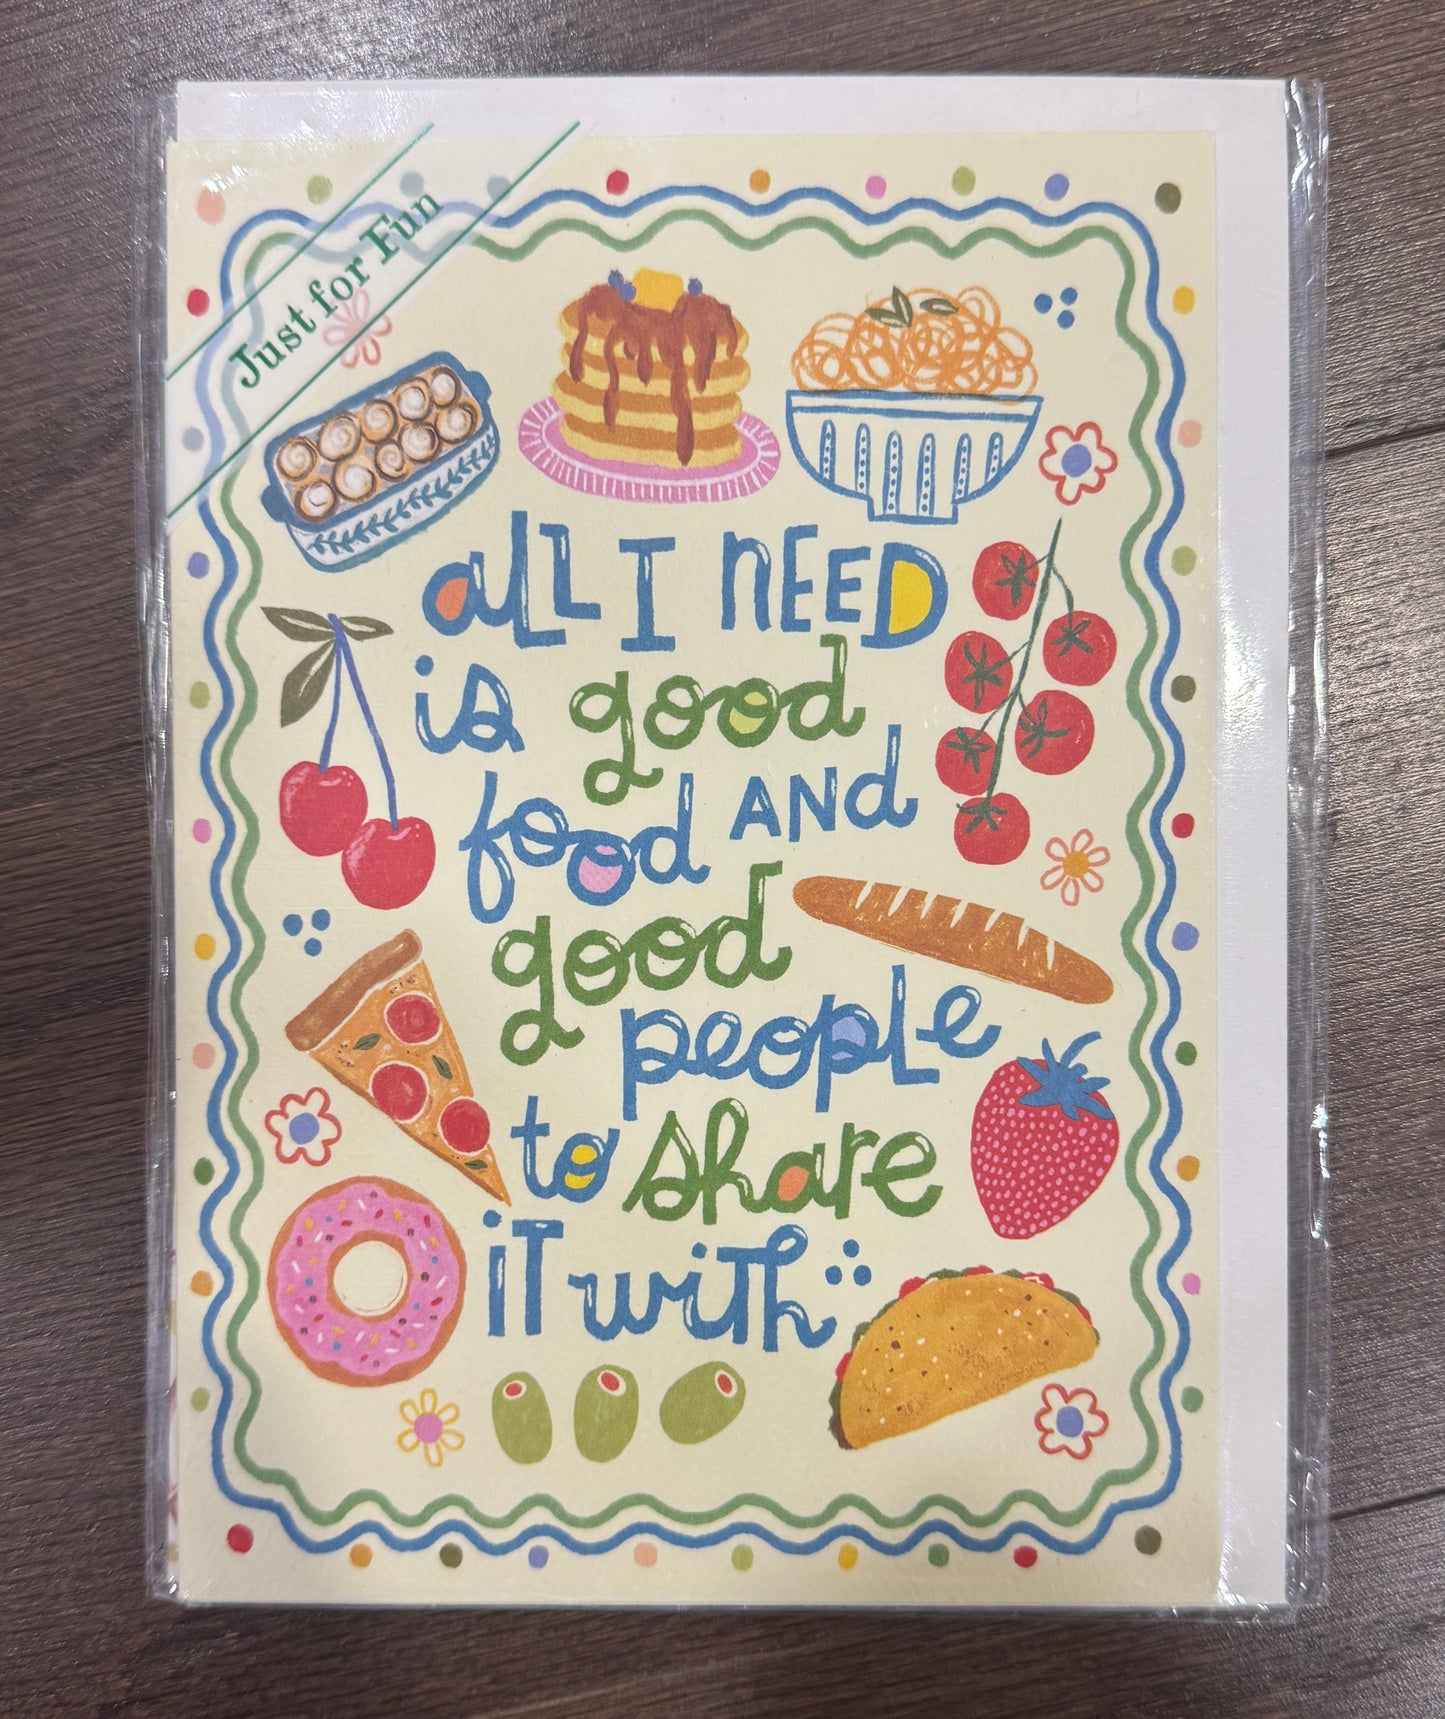 Just for Fun
all I NEED
is good
food AND
good
people
to share
iT wiTh